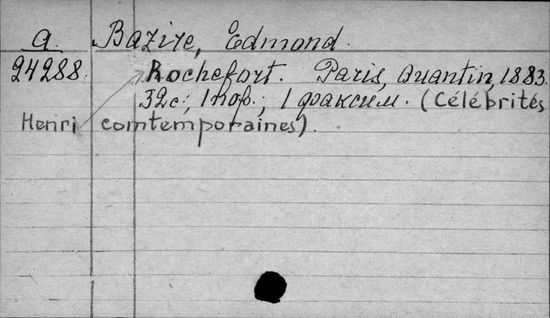 a. Bazire, Edmond.
24288. Rochefort. Paris, Quantin, 1883.
32c.; 1 порт.; 1 факсим. (Célébrités
Henri comtemporaines).